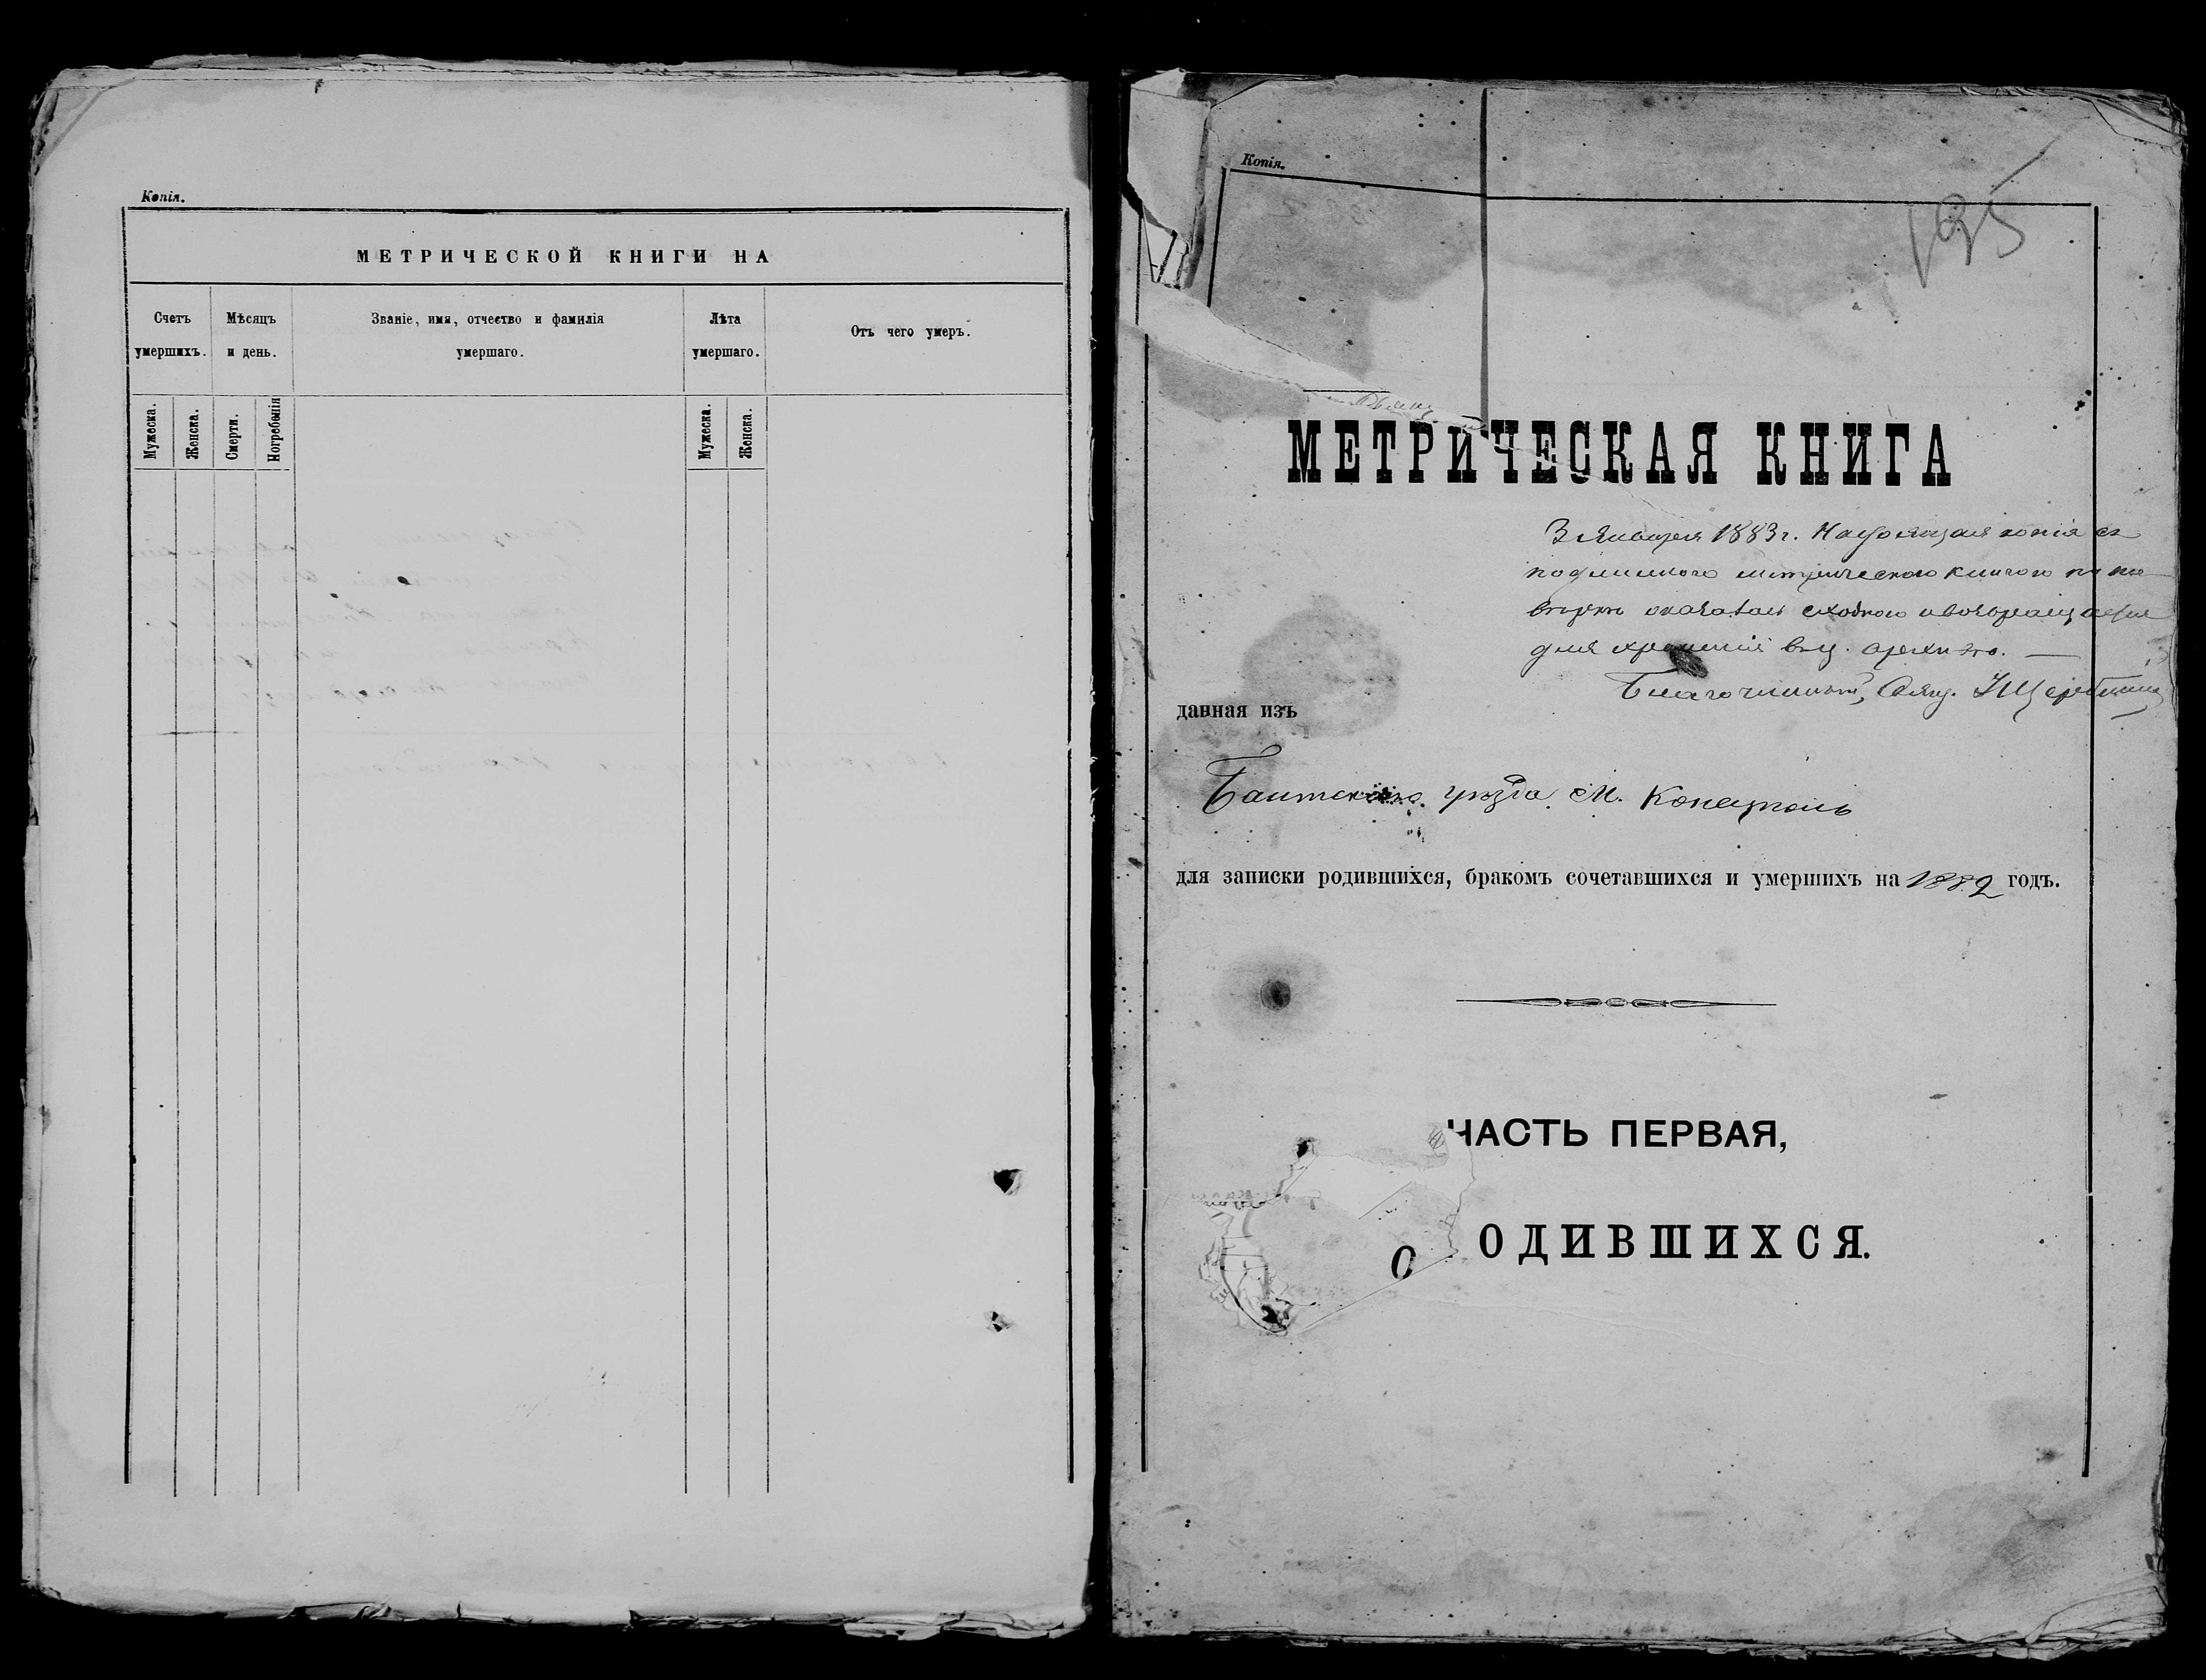 Копія.
МЕТРИЧЕСКОЙ КНИГИ НА
Счетъ умершихъ.
Мѣсяцъ и день.
Званіе, имя, отчество и фамилія умершаго.
Лѣта умершаго.
Отъ чего умеръ.
Мужеска.
Женска.
Смерти.
Погребенія
Мужеска.
Женска.
Копія.
195
МЕТРИЧЕСКАЯ КНИГА
3 Января 1883 г. Настоящая копія съ
подлинною метрическою книгою по по-
вѣркѣ оказалась сходною и возвращается
для храненія въ ц. архивѣ. —
Благочинный, Свящ.
данная изъ
Балтскаго уѣзда М. Конецполь
для записки родившихся, бракомъ сочетавшихся и умершихъ на 1882 годъ.
ЧАСТЬ ПЕРВАЯ,
О
ОДИВШИХСЯ.